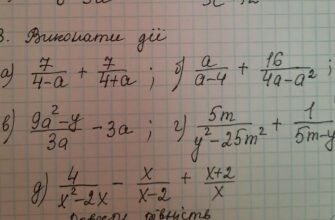 3. Виконати дії
а) 7/(4-a) + 7/(4+a) ; б) a/(a-4) + 16/(4a-a²) ;
в) (9a²-y)/(3a) - 3a ; г) 5m/(y²-25m²) + 1/(5m-y)
д) 4/(x²-2x) - x/(x-2) + (x+2)/x
рівність